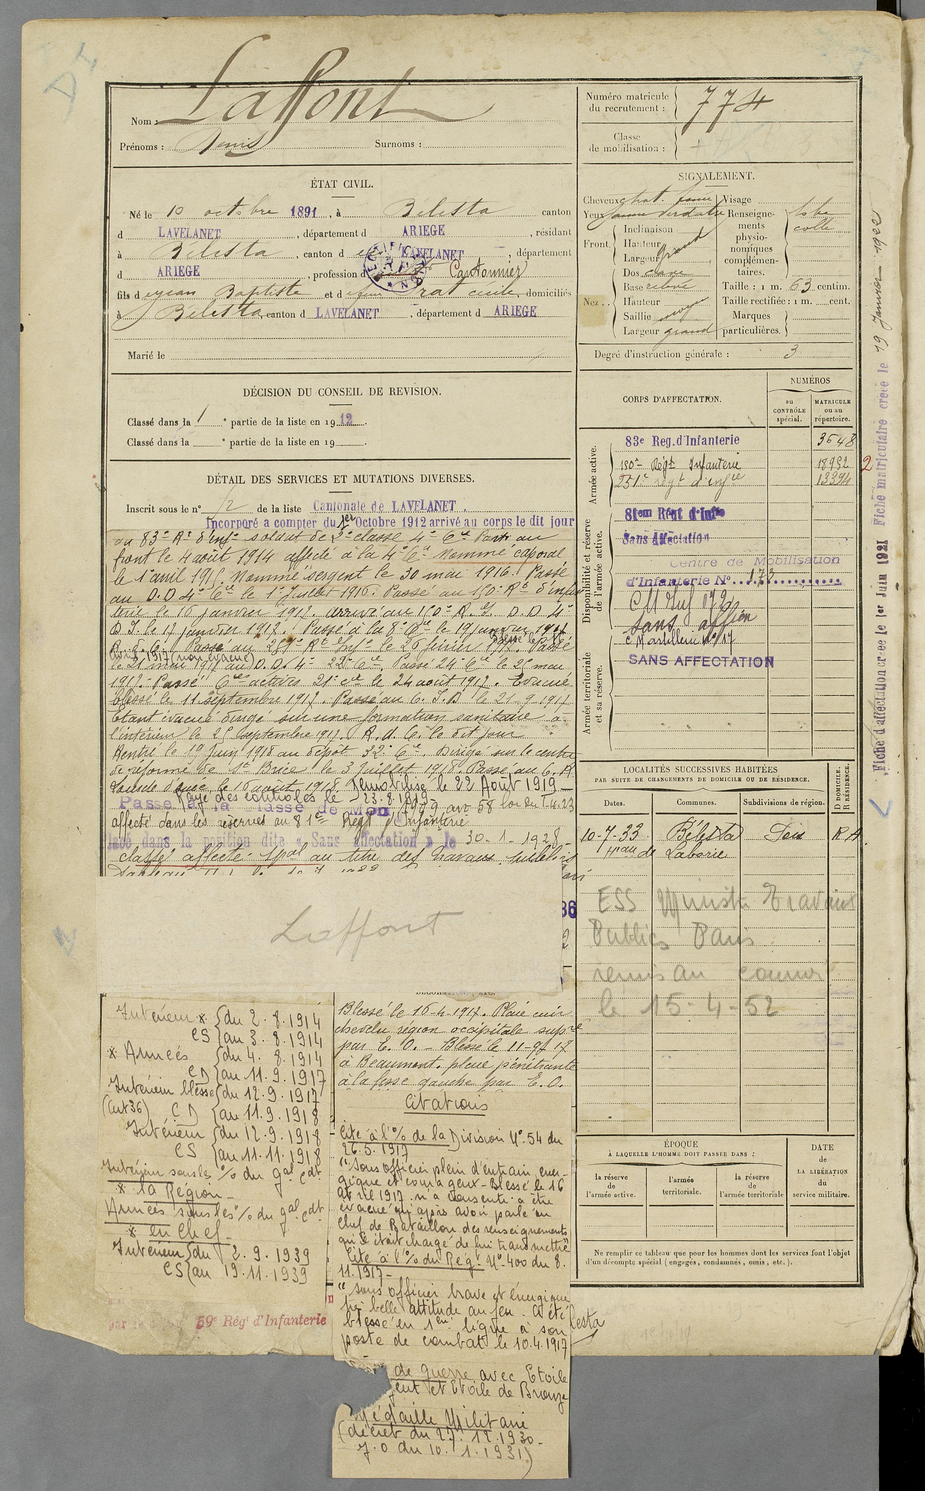 Laffont
Nom :
Prénoms : Denis Surnoms :
ÉTAT CIVIL.
Né le 10 octobre 1891, à Bélesta canton
d LAVELANET, département d ARIEGE, résidant
à Bélesta, canton d LAVELANET, département
d ARIEGE, profession d Cantonnier
fils d Jean Baptiste et d , domiciliés
à Bélesta, canton d LAVELANET, département d ARIEGE
Marié le
DÉCISION DU CONSEIL DE REVISION.
Classé dans la 1 e partie de la liste en 1912.
Classé dans la e partie de la liste en 19 .
DÉTAIL DES SERVICES ET MUTATIONS DIVERSES.
Inscrit sous le n° 12 de la liste Cantonale de LAVELANET.
Incorporé a compter du 1er Octobre 1912 arrivé au corps le dit jour
au 83e Rt d'Inf. soldat de 2e classe 4e Cie Parti au
front le 4 août 1914 affecté à la 4e Cie Nommé caporal
le 1 avril 1915. Nommé sergent le 30 mai 1916. Passé
au D.D. 4e Cie le 1er Juillet 1916. Passé au 150e Rt d'Infan
terie le 16 janvier 1917. arrivé au 150e R. I. D.D. 4e
le 17 janvier 1917. Passé à la 8e Cie le 19 janvier 1917
Passé au 251e Rt Inf. le 26 février 1917. Passé
le 21 mai 1917 au D.D. 4e 22e Cie. Passé 24e Cie le 25 mai
1917. Passé Cies actives 21e Cie le 24 août 1917. Evacué
blessé le 11 septembre 1917. Passé au C.I.D. le 21-9-1917
Etant évacué dirigé sur une formation sanitaire a
l'intérieur le 25 septembre 1917. R.d.C. le dit jour
Rentré le 19 Juin 1918 au dépôt 32e Cie. Dirigé sur le centre
de réforme de St Brice le 3 Juillet 1918. Passé au C.R.
le 10 août 1918. Démobilisé le 22 Août 1919
Rayé des contrôles le 23.8.1919
Passé à la Classe de Mon 1909 art 58 loi du 1.4.23
affecté dans les réserves au 81e Régt d'Infanterie
dans la position dite « Sans Affectation » le 30-1-1928
classé affecté spal au titre des travaux publics
Laffont
Blessé le 16-4-1917. Plaie cuir
chevelu région occipitale supre
par E.O. - Blessé le 11-9-17
à Beaumont. plaie pénétrante
à la fesse gauche par E.O.
Citations
Cité à l'% de la Division N° 54 du
26.5.1917
"Sous officier plein d'entrain éner-
gique et courageux. Blessé le 16
avril 1917 n'a consenti à être
évacué qu'après avoir parlé au
chef de Bataillon des renseignements
qu'il était chargé de lui transmettre"
Cité à l'% du Régt N° 400 du 8.
11.1917 -
"Sous officier brave et énergique
belle attitude au feu. a été
blessé en 1ère ligne à son
poste de combat le 10.4.1917
de guerre avec Etoile
et Etoile de Bronze
Médaille Militaire
(décret du 27.12.1930-
J.O du 10.1.1931)
Intérieur * CS {du 2.8.1914
au 3.8.1914
* Armées CD {du 4.8.1914
au 11.9.1917
Intérieur blessé {du 12.9.1917
(Art 36) CD au 11.9.1918
Intérieur CS {du 12.9.1918
au 11.11.1918
Intérieur sous le % du Gal Cdt
* la Région -
Armées sous les % du gal Cdt
* en Chef -
Intérieur {du 2.9.1939
CS au 19.11.1939
59e Régt d'Infanterie
Numéro matricule
du recrutement : 774
Classe
de mobilisation :
SIGNALEMENT.
Cheveux chat. foncé
Yeux jaune verdâtre
Front Inclinaison
Hauteur
Largeur grand
Nez Dos
Base relevé
Hauteur
Saillie moy
Largeur grand
Visage
Renseigne-
ments
physio-
nomiques
complémen-
taires. lobe
collé
Taille : 1 m. 63 centim.
Taille rectifiée : 1 m. cent.
Marques
particulières.
Degré d'instruction générale : 3
CORPS D'AFFECTATION.
NUMÉROS
au
CONTRÔLE
spécial.
MATRICULE
ou au
répertoire.
Armée active.
83e Reg. d'Infanterie 3648
150e Régt Infanterie 18952
251e Régt d'Infie 13394
Disponibilité et réserve
de l'armée active.
81em Régt d'Infie
Sans Affectation
Centre de Mobilisation
d'Infanterie N° 173
CM Inf 172
sans affon
Armée territoriale
et sa réserve.
SANS AFFECTATION
LOCALITÉS SUCCESSIVES HABITÉES
PAR SUITE DE CHANGEMENTS DE DOMICILE OU DE RÉSIDENCE.
Dates. Communes. Subdivisions de région. D DOMICILE. R RÉSIDENCE.
10-7-33 Bélesta Foix R A
Hau de Laborie
ESS Ministe Travaux
Publics Paris
remis au courrier
le 15-4-52
ÉPOQUE
À LAQUELLE L'HOMME DOIT PASSER DANS :
la réserve
de
l'armée active.
l'armée
territoriale.
la réserve
de
l'armée territoriale
DATE
de
LA LIBÉRATION
du
service militaire.
Ne remplir ce tableau que pour les hommes dont les services font l'objet
d'un décompte spécial (engagés, condamnés, omis, etc.).
Fiche d'affectation créée le 1er Juin 1921 Fiche matriculaire créée le 19 Janvier 1922